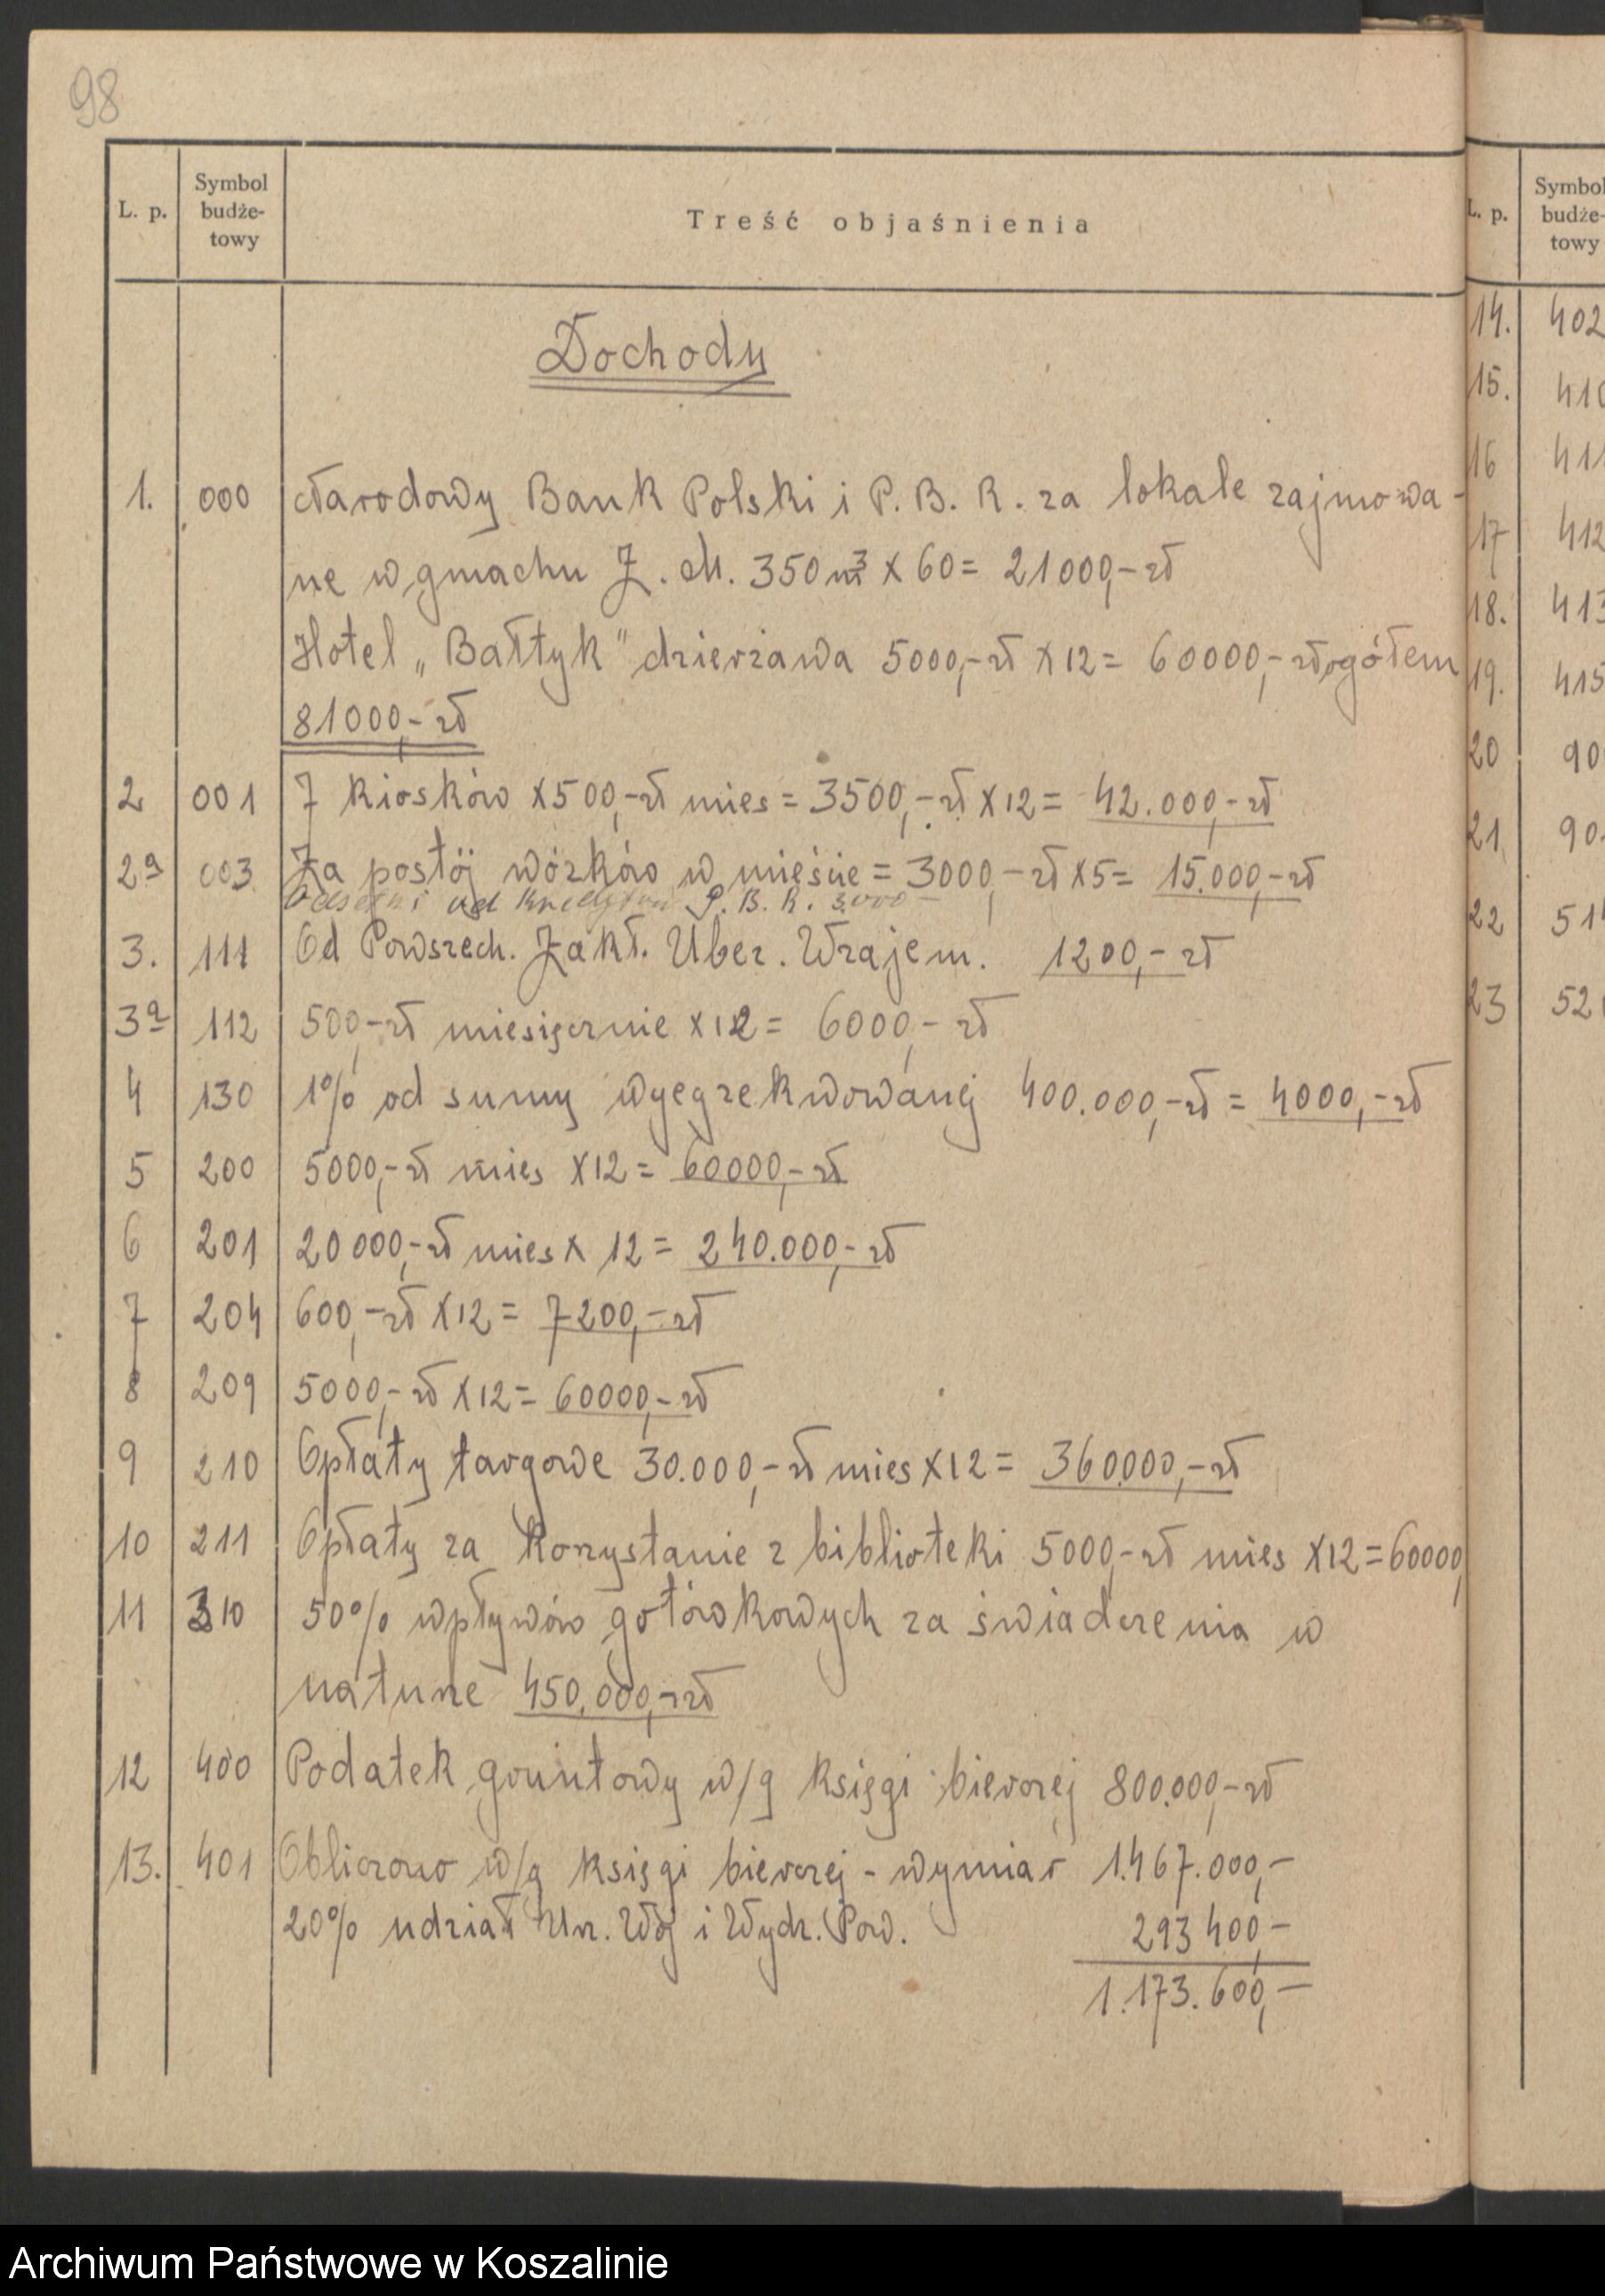 98
L. p. Symbol budże-towy Treść objaśnienia
Dochody
1. 000 Narodowy Bank Polski i P. B. R. za lokale zajmowa-
ne w gmachu Z. M. 350 m³ x 60 = 21000,- zł
Hotel „Bałtyk" dzierżawa 5000,- zł x 12 = 60000,- zł ogółem
81000,- zł
2 001 7 kiosków x 500,- zł mies = 3500,- zł x 12 = 42.000,- zł
2a 003 Za postój wózków w mieście = 3000,- zł x 5 = 15.000,- zł
Odsetki od kredytów P. B. R. 3.000 -
3. 111 Od Powszech. Zakł. Ubez. Wzajem. 1200,- zł
3a 112 500,- zł miesięcznie x 12 = 6000,- zł
4 130 1% od sumy wyegzekwowanej 400.000,- zł = 4000,- zł
5 200 5000,- zł mies x 12 = 60000,- zł
6 201 20000,- zł mies x 12 = 240.000,- zł
7 204 600,- zł x 12 = 7200,- zł
8 209 5000,- zł x 12 = 60000,- zł
9 210 Opłaty targowe 30.000,- zł mies x 12 = 360.000,- zł
10 211 Opłaty za korzystanie z biblioteki 5000,- zł mies x 12 = 60000,
11 310 50% wpływów gotówkowych za świadczenia w
naturze 450.000,- zł
12 400 Podatek gruntowy w/g księgi bierczej 800.000,- zł
13. 401 Obliczono w/g księgi bierczej - wymiar 1.467.000,-
20% udział Urz. Woj i Wydz. Pow. 293 400,-
1.173.600,-
L. p. Symbol budże-towy
14. 402
15. 410
16 411
17 412
18. 413
19. 415
20 90
21 90
22 51
23 52
Archiwum Państwowe w Koszalinie